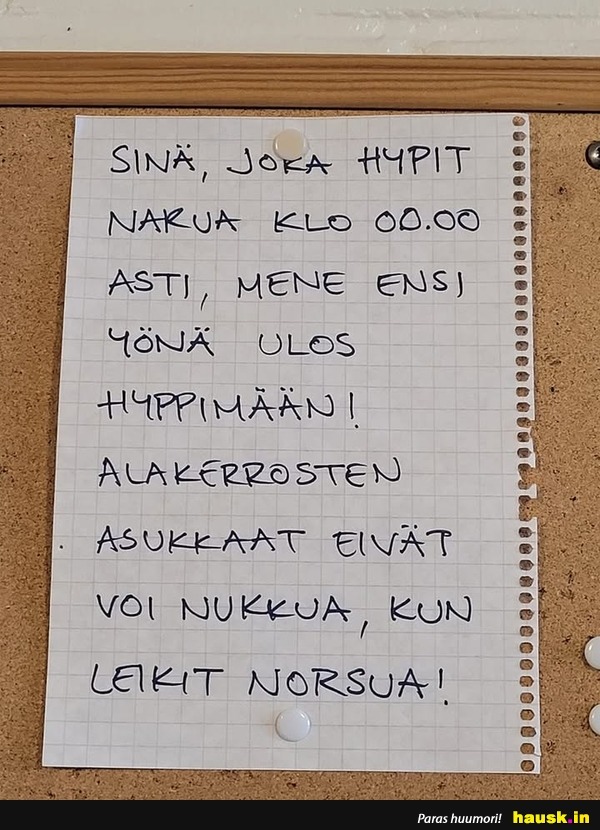 SINÄ, JOKA HYPIT
NARUA KLO 00.00
ASTI, MENE ENSI
YÖNÄ ULOS
HYPPIMÄÄN!
ALAKERROSTEN
ASUKKAAT EIVÄT
VOI NUKKUA, KUN
LEIKIT NORSUA!
Paras huumori! hausk.in